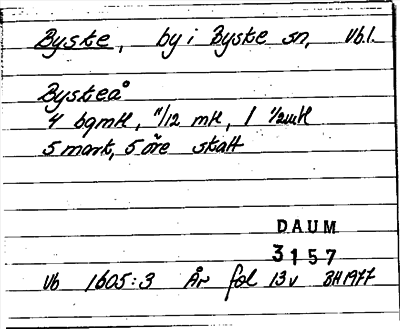 Byske, by i Byske sn, Vb.l.
Bysteå
4 bgmtl, 11/12 mtl, 1 1/2 mtl
5 mark, 5 öre skatt
DAUM
3157
Vb 1605:3 År fol 13v BH 1977